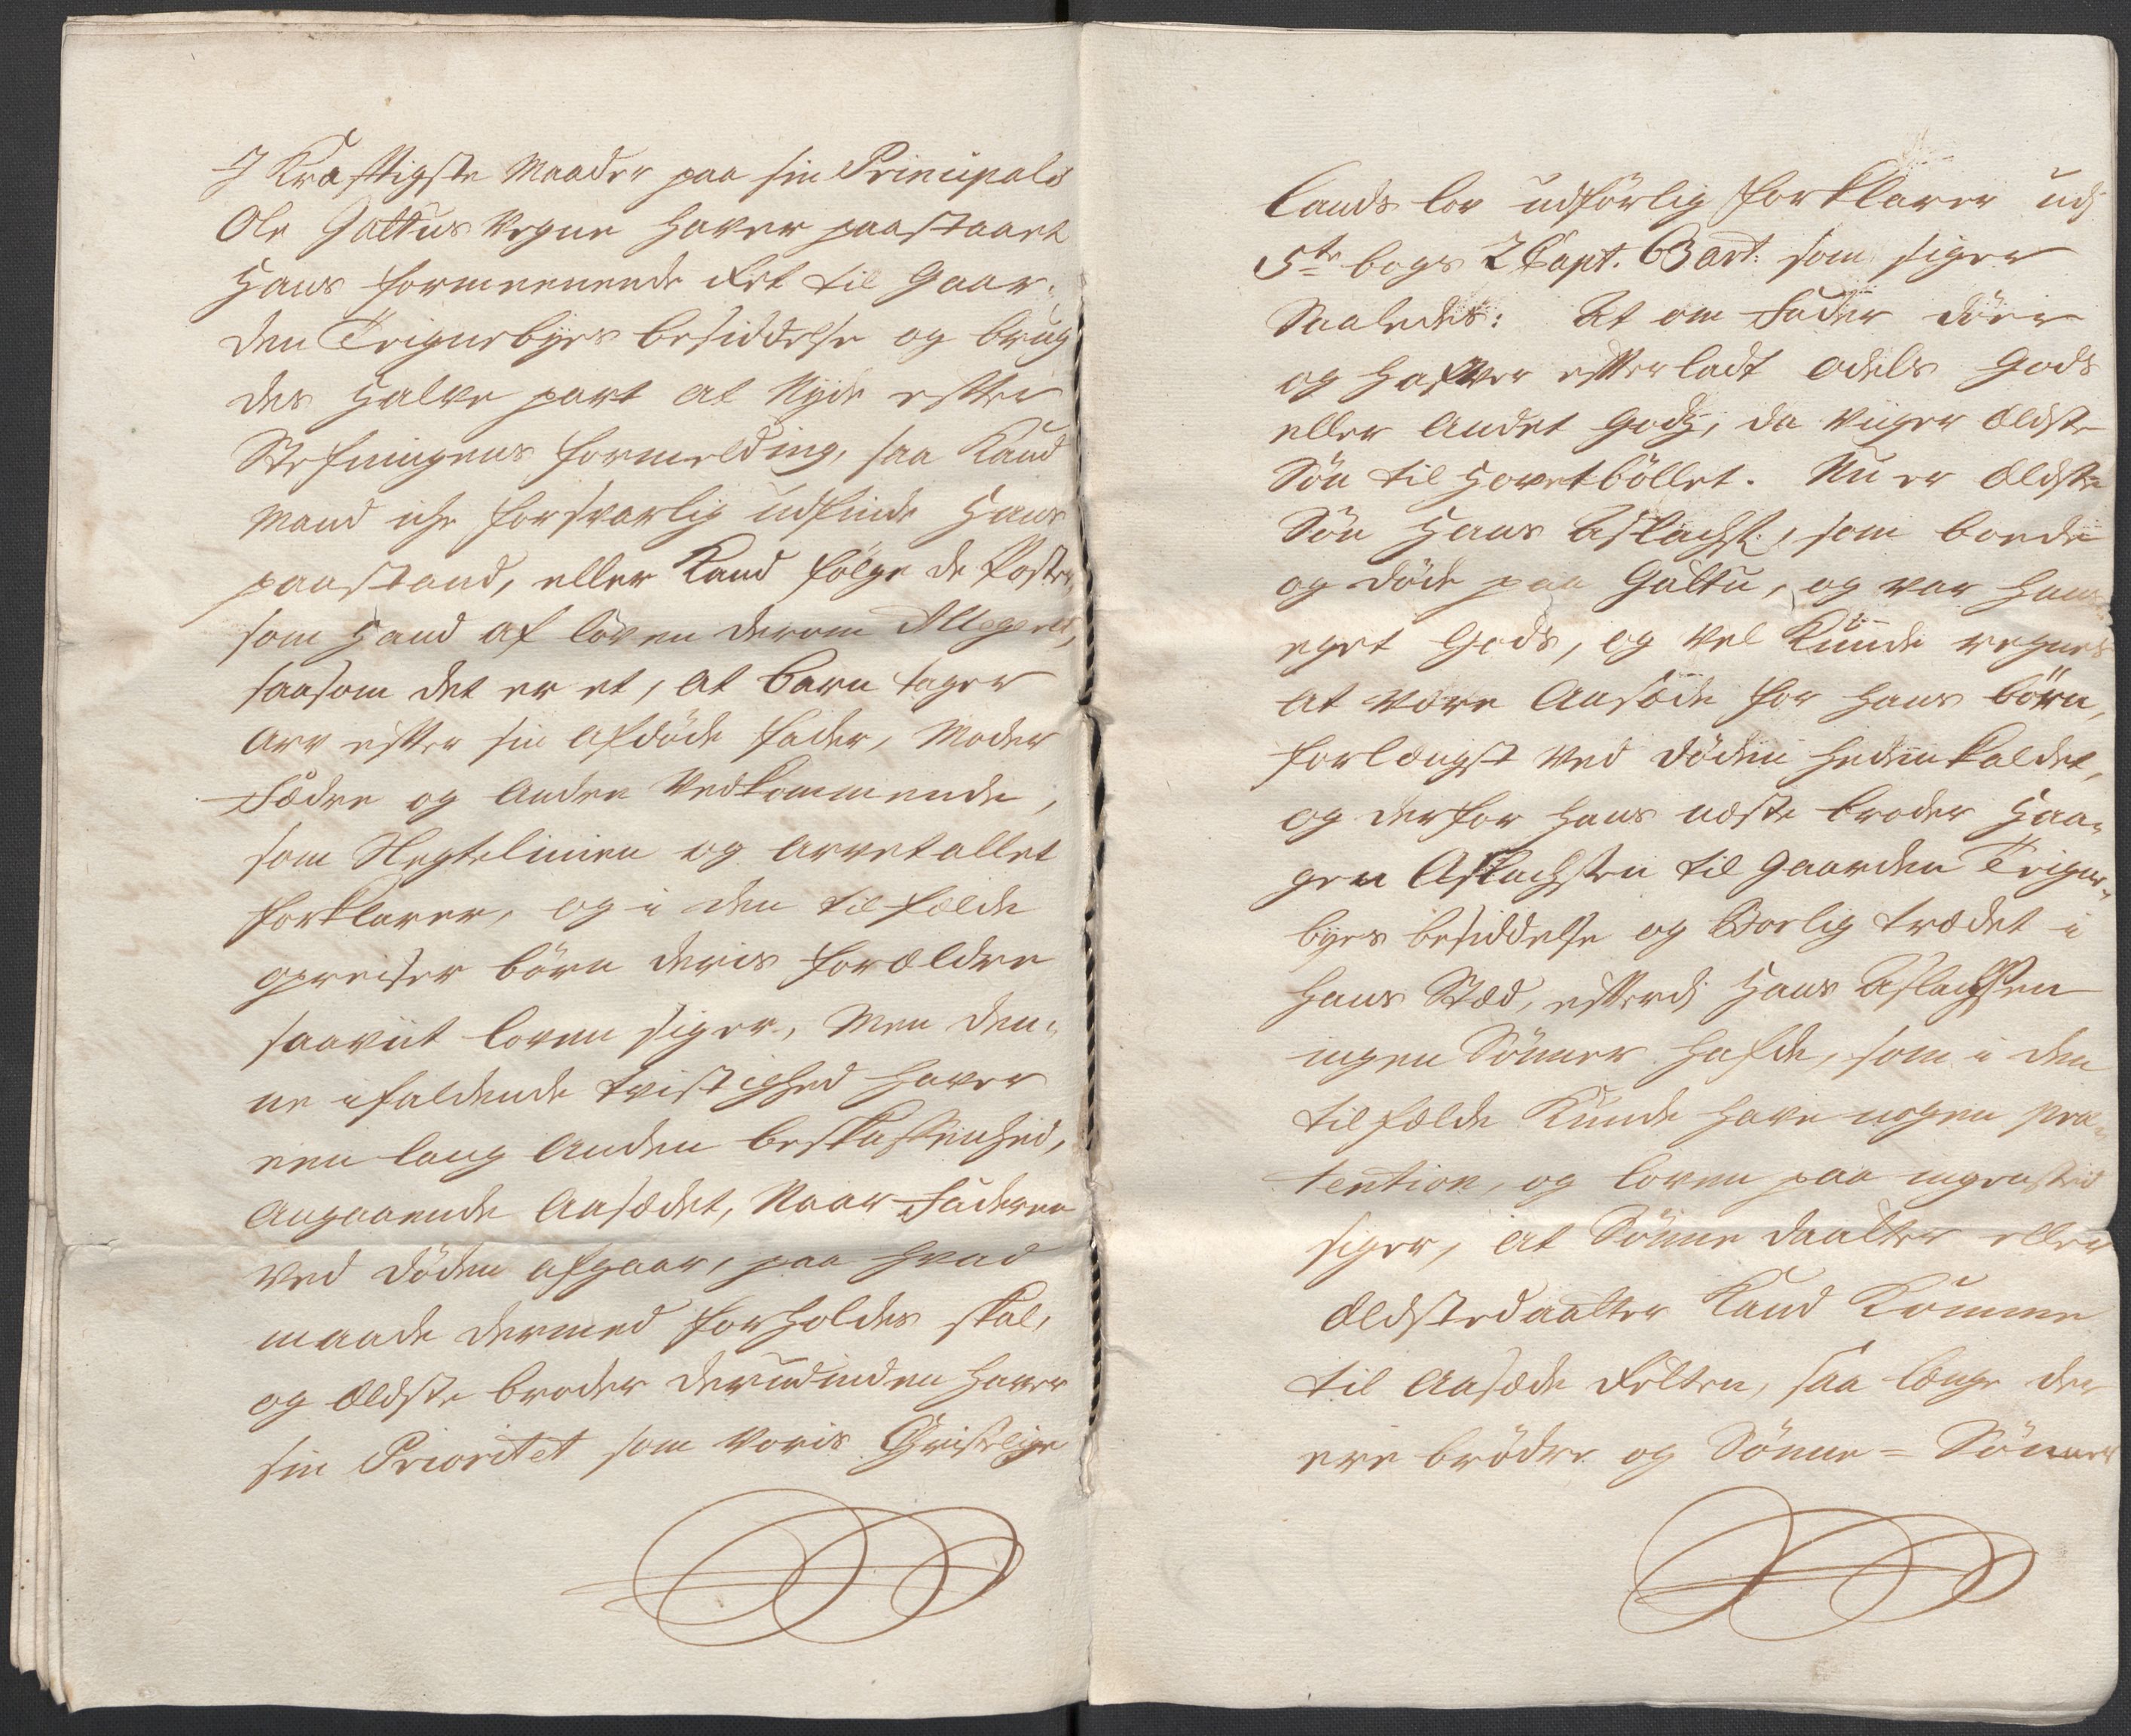 I Kraftigste Maader paa sin Principals
Ole Galtus Vegne haver paastaaet
Hans formeenende Ret til Gaar-
den Teignebyes besiddelse og brug
des Halve part at Nyde efter
Stefningens formelding, saa Kand
Mand iche forsvarlig udfinde Hans
paastand, eller Kand følge de Poster,
som Hand af loven derom Allegerer,
saasom det er et, at barn tager
Arv efter sin afdøde fader, Moder
Fædre og Andre Vedkommende,
som Slegtelinien og arvetallet
forklarer, og i den tilfælde
opreiser børn deris forældre
saaviit loven siger, Men den-
ne ifaldende tvistighed haver
een lang Anden beskaffenhed,
Angaaende Aasædet, Naar Faderen
ved døden afgaar, paa hvad
maade dermed forholdes skal,
og Eldste broder derudinden haver
sin Prioritet som voris Christelige
Lands lov udførlig forklarer udj
5te bogs 2 Capt. 63 art: som siger
Saaledes: At om Fader döer
og hafver efterladt Odels Gods
eller Andet Gods, da tager Eldste
Søn til Hovetböllet. Nu er Eldste
Søn Hans Aslachs:, som boede
og døde paa Galtu, og var hans
eget Gods, og vel Kunde regnes
at være Aasæde for hans børn,
forlængst ved døden hedenkaldet,
og derfor hans næste broder Haa-
gen Aslachsen til Gaarden Teigne-
byes besiddelse og Boelig trædet i
Hans Sted, efterdj Hans Aslachsen
ingen Sønner hafde, som i den
tilfælde Kunde have nogen Præ-
tention, og loven paa ingensted
siger, at Sønne daatter eller
Eldstedaatter Kand Komme
til Aasæde Retten, saa længe der
ere brødre og Sønne = Sønner